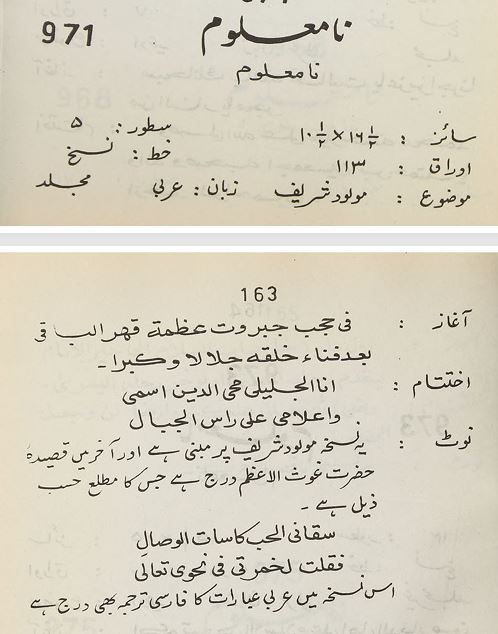 971
نامعلوم
نامعلوم
سائز : ۱۶ ۱/۲ × ۱۰ ۱/۲ سطور : ۵
اوراق : ۱۱۳ خط : نسخ
موضوع : مولود شریف زبان : عربی مجلد
163
آغاز : فی حجب جبروت عظمة قهر الباقی
بعد فناء خلقه جلالا و کبرا ۔
اختتام : انا الجلیلی محی الدین اسمی
واعلامی علی راس الجبال
نوٹ : یہ نسخہ مولود شریف پر مبنی ہے اور آخر میں قصیدہ
حضرت غوث الاعظم درج ہے جس کا مطلع حسب
ذیل ہے ۔
سقانی الحب کاسات الوصالِ
فقلت لخمرتی فی نحوی تعالی
اس نسخہ میں عربی عبارات کا فارسی ترجمہ بھی درج ہے